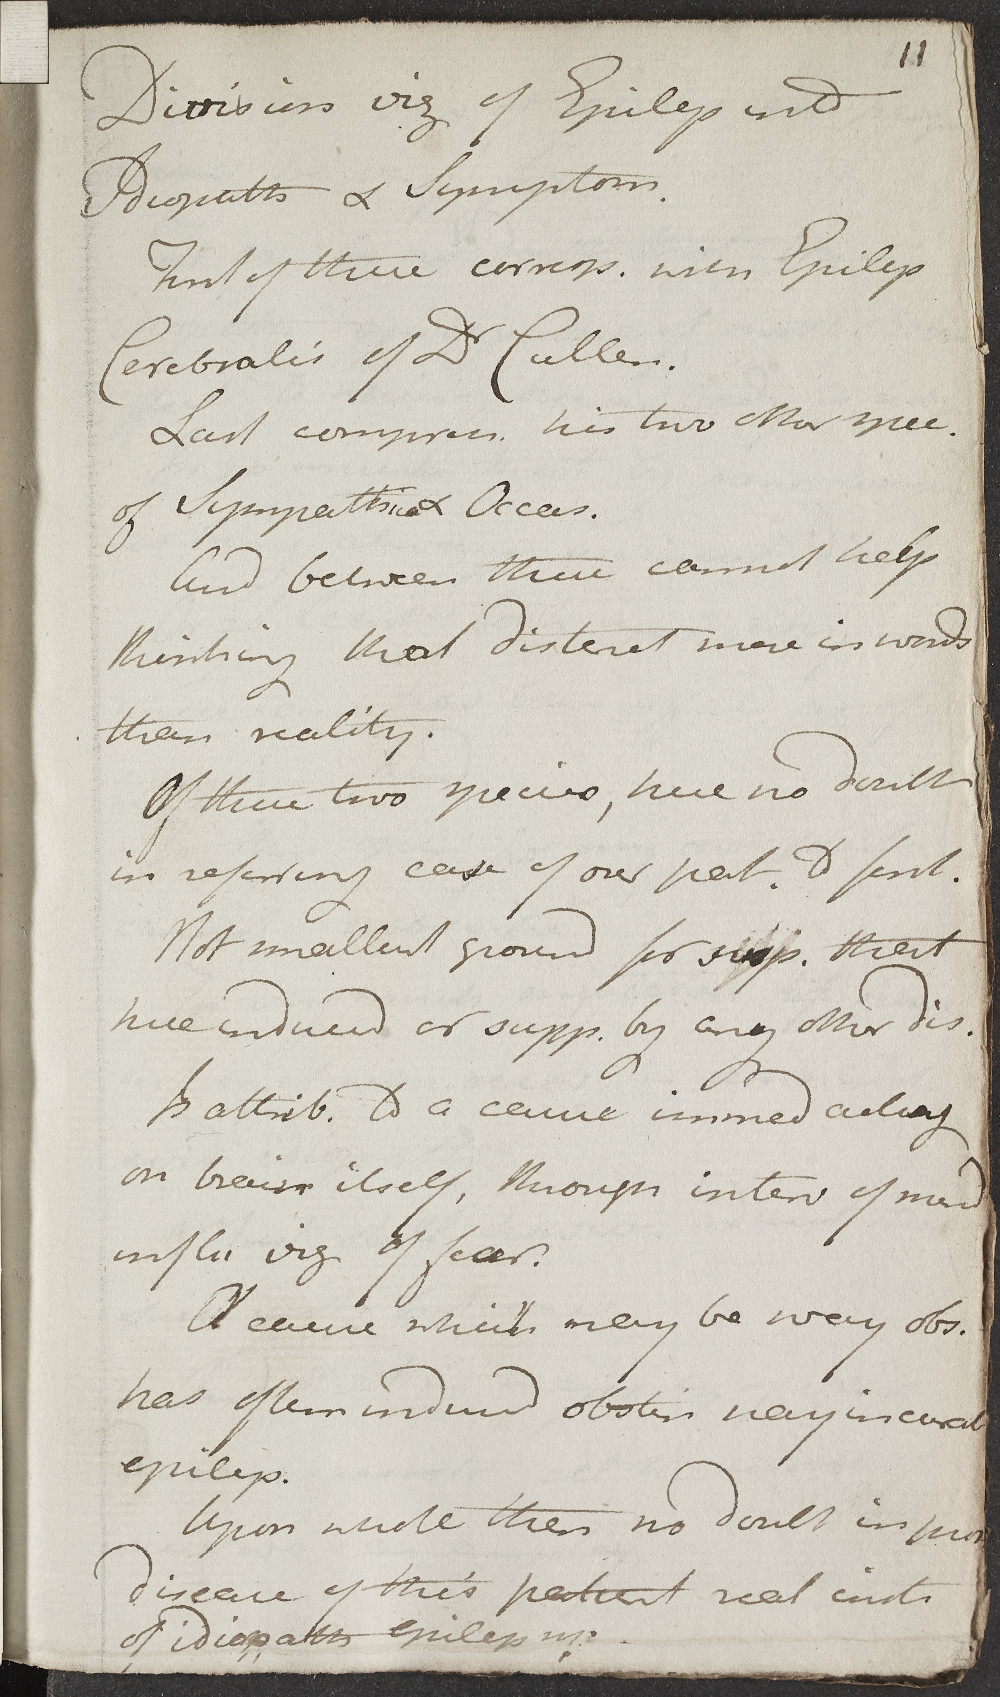 11
Division viz of Epilep into
Idiopath & Symptom.
First of these corresp. with Epilep
Cerebralis of Dr Cullen.
Last compreh. his two other spec.
of Sympathic & Occas.
And between these cannot help
thinking that distinct more in words
than reality.
Of these two species, here no doubt
in referring case of our pat. to first.
Not smallest ground for supp. that
here induced or supp. by any other dis.
Is attrib. to a cause immed acting
on brain itself, through interv of mend
influ viz of fear.
A cause which may be way obs.
has often induced obstin nay incurab
epilep.
Upon whole then no doubt in pron
disease of this patient real inst
of idiopath epilep